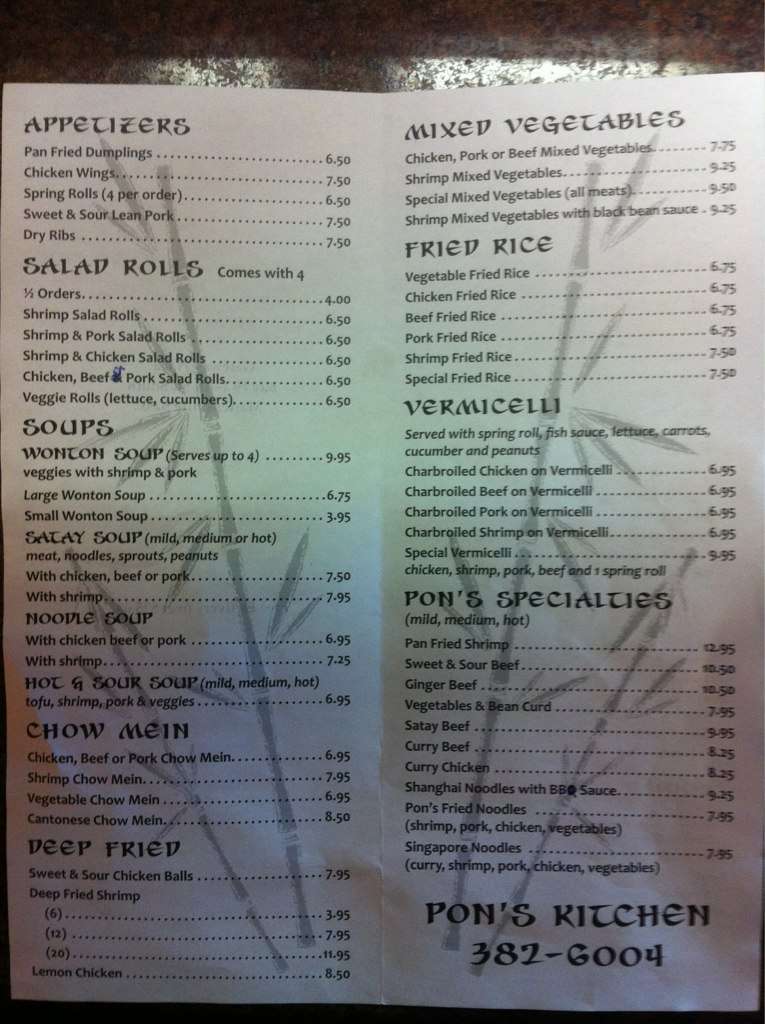 APPETIZERS
Pan Fried Dumplings 6.50
Chicken Wings 7.50
Spring Rolls (4 per order) 6.50
Sweet & Sour Lean Pork 7.50
Dry Ribs 7.50
SALAD ROLLS Comes with 4
½ Orders 4.00
Shrimp Salad Rolls 6.50
Shrimp & Pork Salad Rolls 6.50
Shrimp & Chicken Salad Rolls 6.50
Chicken, Beef & Pork Salad Rolls 6.50
Veggie Rolls (lettuce, cucumbers) 6.50
SOUPS
WONTON SOUP (Serves up to 4) 9.95
veggies with shrimp & pork
Large Wonton Soup 6.75
Small Wonton Soup 3.95
SATAY SOUP (mild, medium or hot)
meat, noodles, sprouts, peanuts
With chicken, beef or pork 7.50
With shrimp 7.95
NOODLE SOUP
With chicken beef or pork 6.95
With shrimp 7.25
HOT & SOUR SOUP (mild, medium, hot)
tofu, shrimp, pork & veggies 6.95
CHOW MEIN
Chicken, Beef or Pork Chow Mein 6.95
Shrimp Chow Mein 7.95
Vegetable Chow Mein 6.95
Cantonese Chow Mein 8.50
DEEP FRIED
Sweet & Sour Chicken Balls 7.95
Deep Fried Shrimp
(6) 3.95
(12) 7.95
(20) 11.95
Lemon Chicken 8.50
MIXED VEGETABLES
Chicken, Pork or Beef Mixed Vegetables 7.75
Shrimp Mixed Vegetables 9.25
Special Mixed Vegetables (all meats) 9.50
Shrimp Mixed Vegetables with black bean sauce 9.25
FRIED RICE
Vegetable Fried Rice 6.75
Chicken Fried Rice 6.75
Beef Fried Rice 6.75
Pork Fried Rice 6.75
Shrimp Fried Rice 7.50
Special Fried Rice 7.50
VERMICELLI
Served with spring roll, fish sauce, lettuce, carrots,
cucumber and peanuts
Charbroiled Chicken on Vermicelli 6.95
Charbroiled Beef on Vermicelli 6.95
Charbroiled Pork on Vermicelli 6.95
Charbroiled Shrimp on Vermicelli 6.95
Special Vermicelli 9.95
chicken, shrimp, pork, beef and 1 spring roll
PON'S SPECIALTIES
(mild, medium, hot)
Pan Fried Shrimp 12.95
Sweet & Sour Beef 10.50
Ginger Beef 10.50
Vegetables & Bean Curd 7.95
Satay Beef 9.95
Curry Beef 8.25
Curry Chicken 8.25
Shanghai Noodles with BBQ Sauce 9.25
Pon's Fried Noodles 7.95
(shrimp, pork, chicken, vegetables)
Singapore Noodles 7.95
(curry, shrimp, pork, chicken, vegetables)
PON'S KITCHEN
382-6004